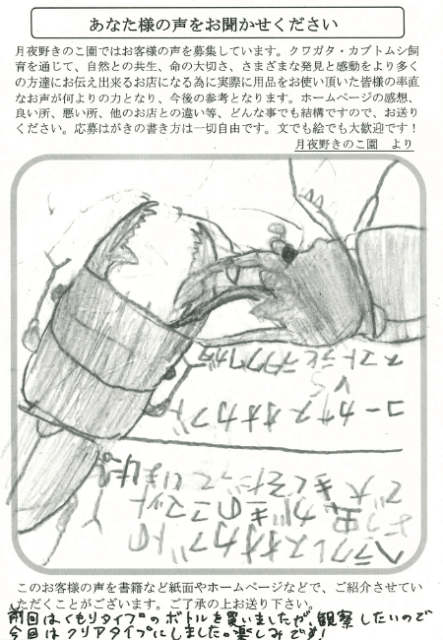 あなた様の声をお聞かせください
月夜野きのこ園ではお客様の声を募集しています。クワガタ・カブトムシ飼
育を通じて、自然との共生、命の大切さ、さまざまな発見と感動をより多く
の方達にお伝え出来るお店になる為に実際に用品をお使い頂いた皆様の率直
なお声が何よりの力となり、今後の参考となります。ホームページの感想、
良い所、悪い所、他のお店との違い等、どんな事でも結構ですので、お送り
ください。応募はがきの書き方は一切自由です。文でも絵でも大歓迎です！
月夜野きのこ園　より
スマトラヒラタクワガタ
VS
コーカサスオオカブト
ヘラクレスオオカブトの
よう虫がきのこマット
で大きくそだっています。
このお客様の声を書籍など紙面やホームページなどで、ご紹介させてい
ただくことがございます。ご了承の上お送り下さい。
前回はくもりタイプのボトルを買いましたが、観察したいので
今回はクリアタイプにしました。楽しみです！